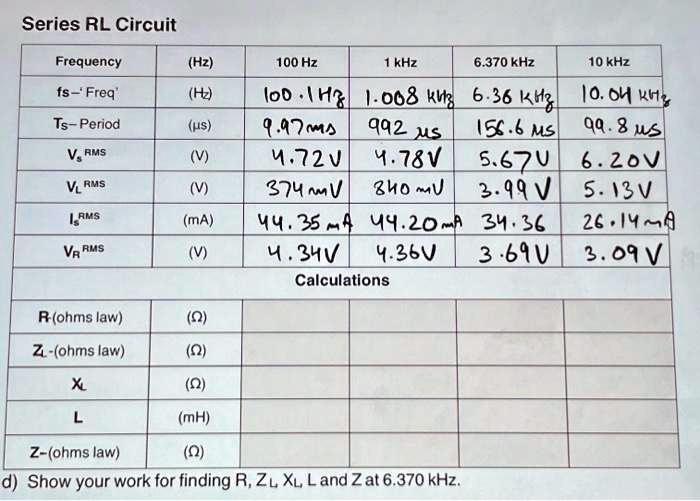 Series RL Circuit
Frequency (Hz) 100 Hz 1 kHz 6.370 kHz 10 kHz
fs-'Freq' (Hz) 100.1Hz 1.008 kHz 6.36 kHz 10.04 kHz
Ts-Period (μs) 9.97ms 992 μs 156.6 μs 99.8 μs
Vs RMS (V) 4.72V 4.78V 5.67V 6.20V
VL RMS (V) 374mV 840mV 3.99V 5.13V
Is RMS (mA) 44.35mA 44.20mA 34.36 26.14mA
VR RMS (V) 4.34V 4.36V 3.69V 3.09V
Calculations
R-(ohms law) (Ω)
ZL-(ohms law) (Ω)
XL (Ω)
L (mH)
Z-(ohms law) (Ω)
d) Show your work for finding R, ZL, XL, L and Z at 6.370 kHz.